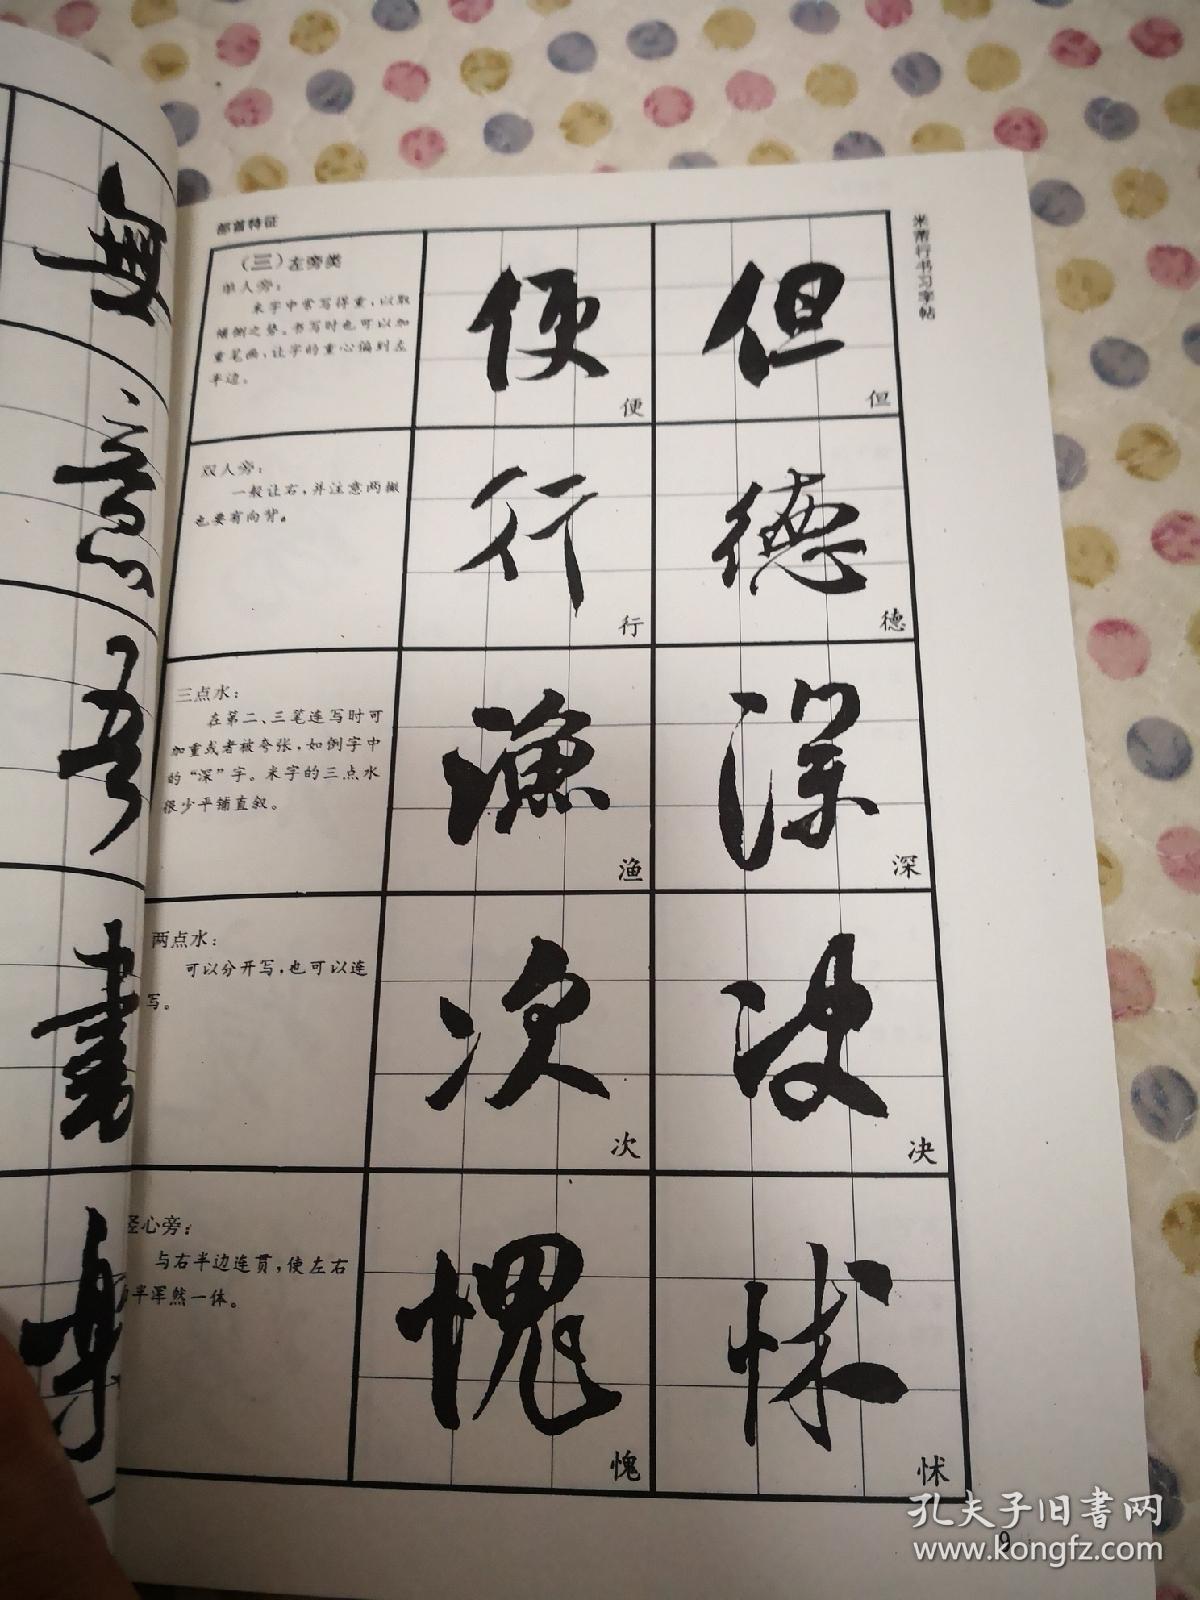 無
意
吾
書
部首特征
米芾行书习字帖
（三）左旁类
单人旁：
米字中常写得重，以取
倾侧之势。书写时也可以加
重笔画，让字的重心偏到左
半边。
便
便
但
但
双人旁：
一般让右，并注意两撇
也要有向背。
行
行
德
德
三点水：
在第二、三笔连写时可
加重或者被夸张，如例字中
的“深”字。米字的三点水
很少平铺直叙。
渔
渔
深
深
两点水：
可以分开写，也可以连
写。
次
次
决
决
竖心旁：
与右半边连贯，使左右
半浑然一体。
愧
愧
怵
怵
9
孔夫子旧书网
www.kongfz.com